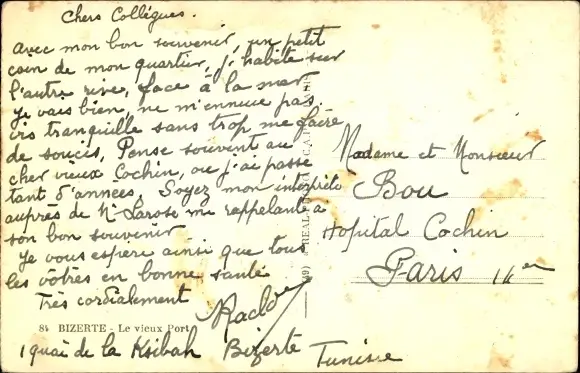 Chers Collégues.
avec mon bon souvenir, un petit
coin de mon quartier, j'habite sur
l'autre rive, face à la mer
Je vais bien, ne m'ennuie pas
vis tranquille sans trop me faire
de soucis, Pense souvent au
cher vieux Cochin, ou j'ai passé
tant d'années, Soyez mon interprète
auprès de Mr Larose me rappelant a
son bon souvenir
Je vous espère ainsi que tous
les vôtres en bonne santé
Très cordialement
84 BIZERTE - Le vieux Port
1 quai de la Ksibah Bizerte Tunisie
Madame et Monsieur
Bou
Hopital Cochin
Paris 14er